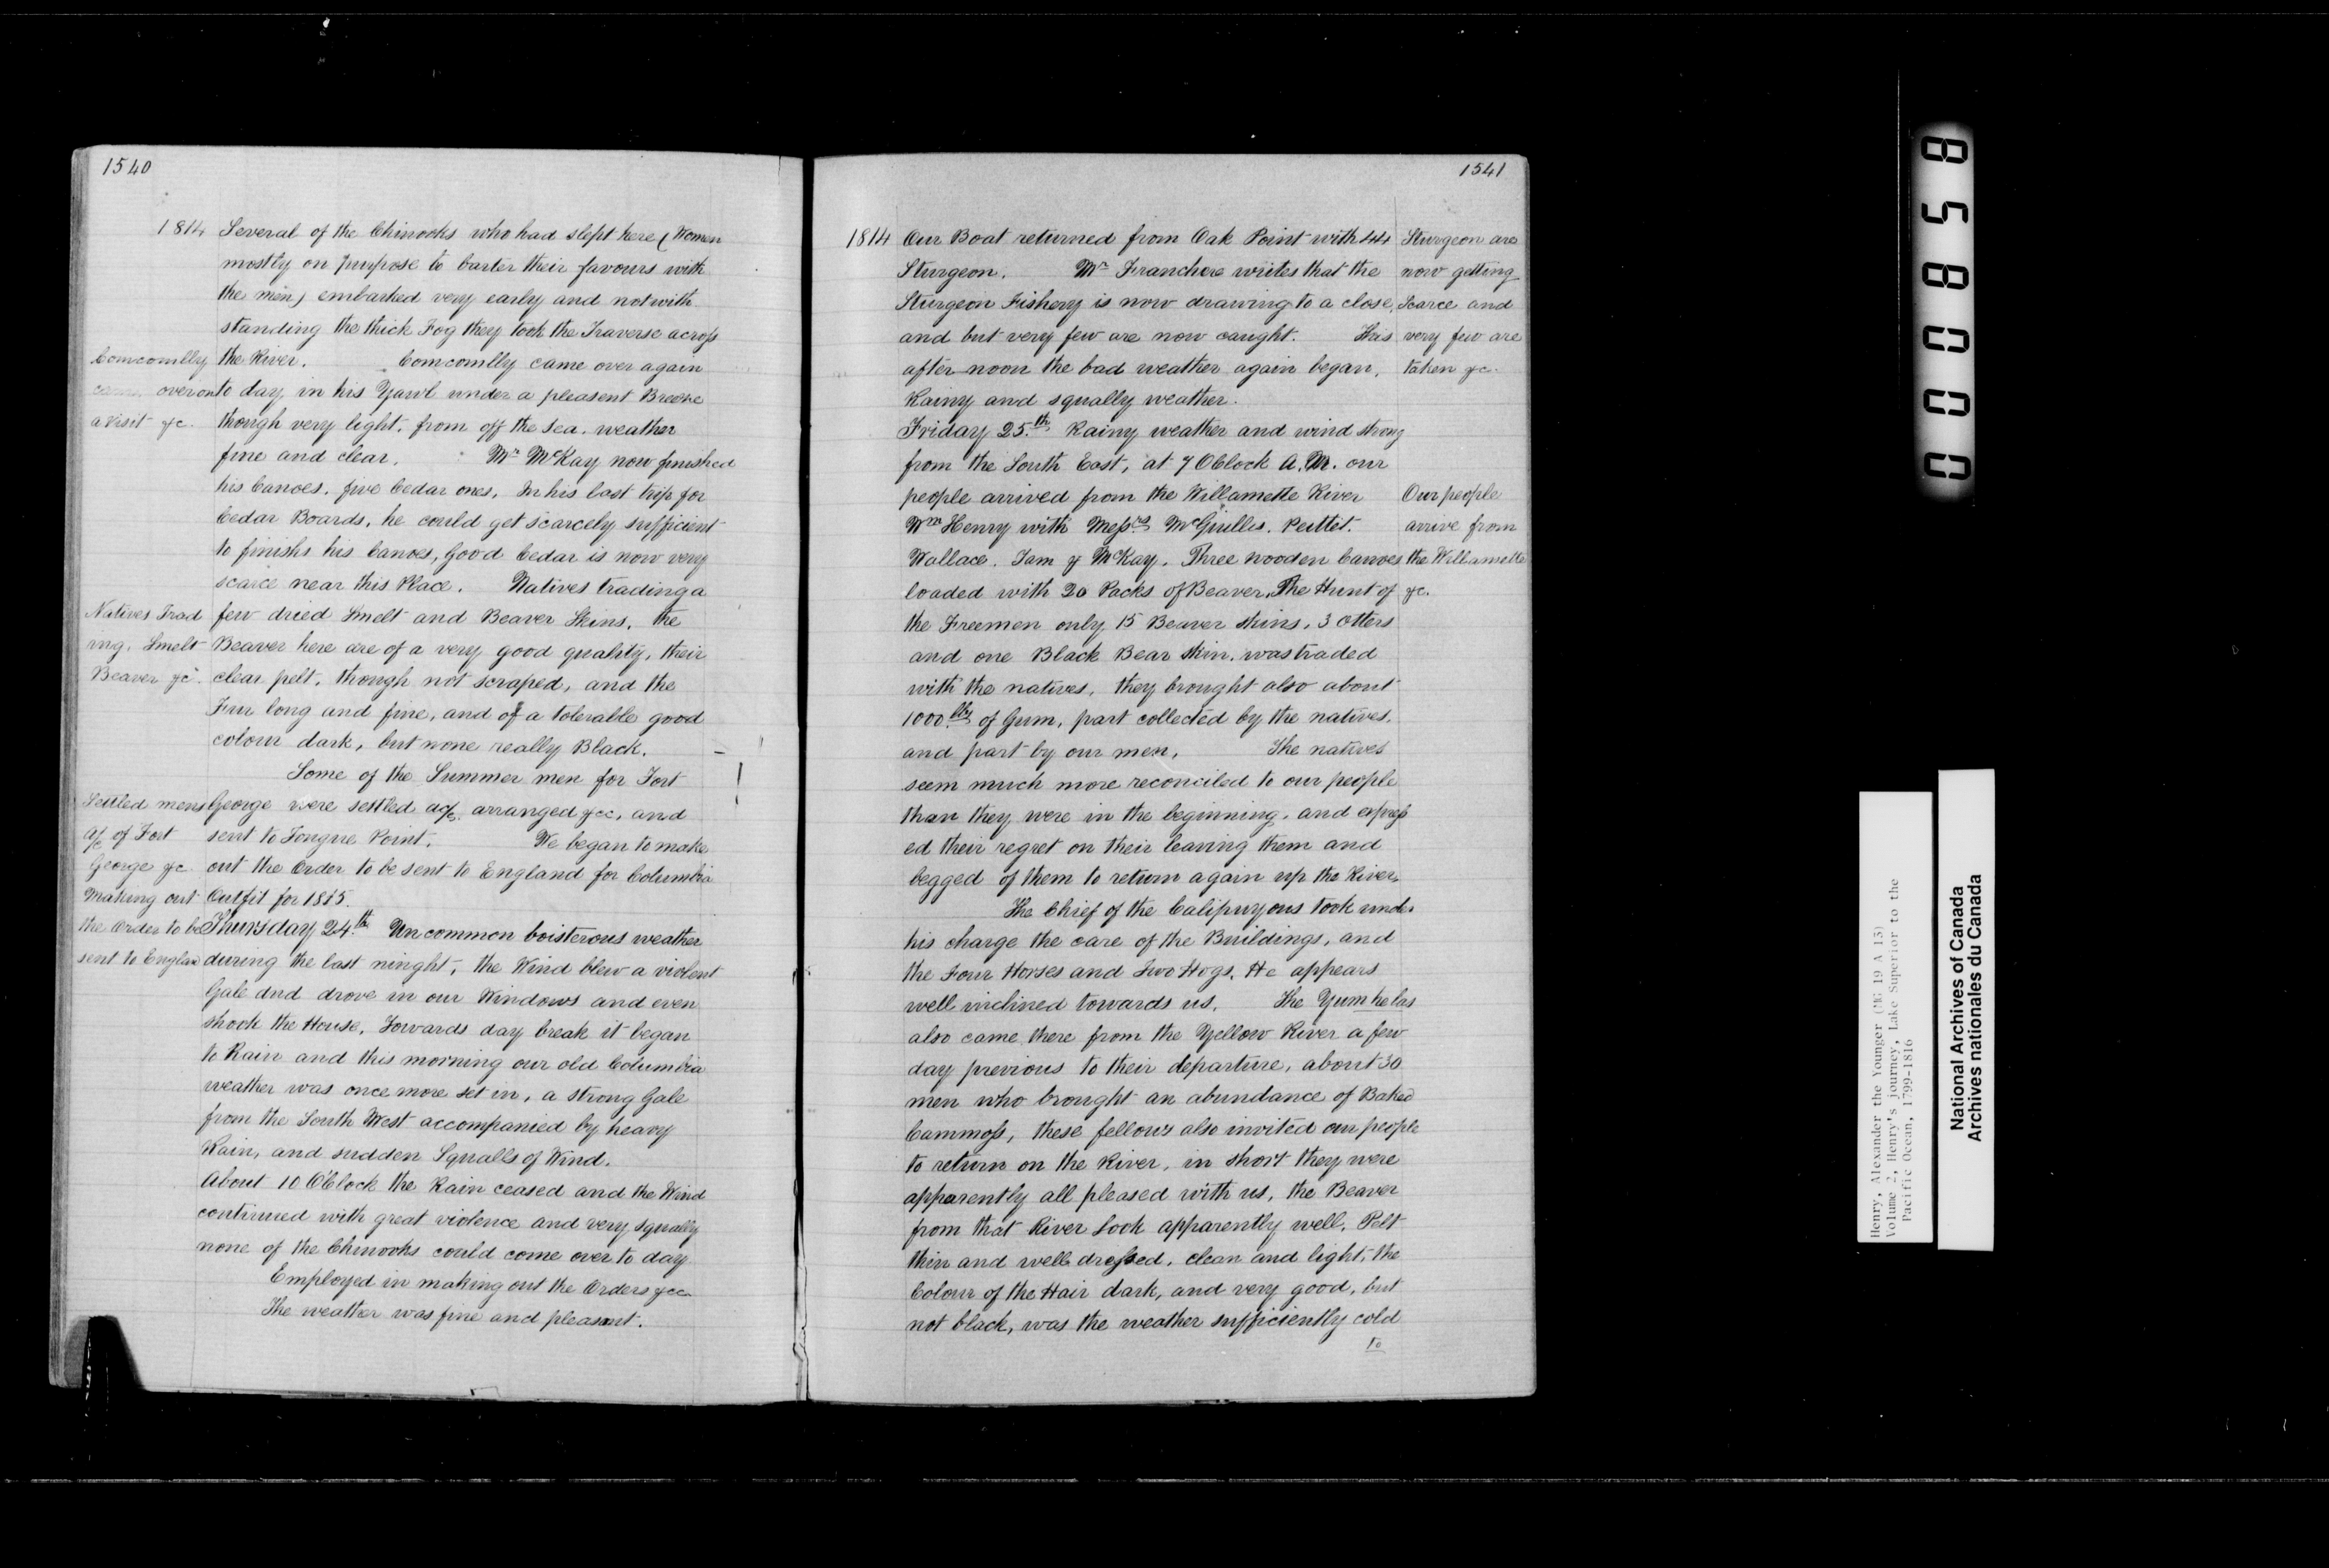 1540
1814 Several of the Chinooks who had slept here (Women
mostly on purpose to barter their favours with
the men) embarked very early and notwith
standing the thick Fog they took the Traverse across
the River. Comcomlly came over again
to day in his Yawl under a pleasent Breeze
though very light. from off the sea. weather
fine and clear. Mr McKay now finished
his Canoes. five Cedar ones. In his last trip for
Cedar Boards, he could get scarcely sufficient
to finish his Canoes, Good Cedar is now very
scarce near this Place. Natives trading a
few dried Smelt and Beaver Skins. the
Beaver here are of a very good quality, their
clear pelt. though not scraped, and the
Fur long and fine, and of a tolerable good
colour dark, but none really Black.
Some of the Summer men for Fort
George were settled a/c arranged &cc, and
sent to Tongue Point. We began to make
out the Order to be sent to England for Columbia
Outfit for 1815.
Thursday 24.th Uncommon boisterous weather
during the last ninght, the Wind blew a violent
Gale and drove in our Windows and even
shook the House. Towards day break it began
to Rain and this morning our old Columbia
weather was once more set in, a strong Gale
from the South West accompanied by heavy
Rain, and sudden Squalls of Wind.
About 10 O'Clock the Rain ceased and the Wind
continued with great violence and very squally
none of the Chinooks could come over to day
Employed in making out the Orders &cc
The weather was fine and pleasant.
Comcomlly
came over on
a visit &c.
Natives Trad
ing. Smelt
Beaver &c.
Settled mens
a/c of Fort
George &c
Making out
the Order to be
sent to Englan
1541
1814 Our Boat returned from Oak Point with 44
Sturgeon. Mr Franchere writes that the
Sturgeon Fishery is now drawing to a close,
and but very few are now caught. This
after-noon the bad weather again began.
Rainy and squally weather.
Friday 25.th Rainy weather and wind strong
from the South East, at 7 OClock A.M. our
people arrived from the Willamette River
Wm Henry with Messrs McGillis. Pettit.
Wallace. Tam & McKay. Three wooden Canoes
loaded with 20 Packs of Beaver, The Hunt of
the Freemen only 15 Beaver skins, 3 Otters
and one Black Bear skin. was traded
with the natives, they brought also about
1000 lbs of Gum, part collected by the natives.
and part by our men, The natives
seem much more reconciled to our people
than they were in the beginning. and express
ed their regret on their leaving them and
begged of them to return again up the River.
The Chief of the Calipuyous took under
his charge the care of the Buildings, and
the Four Horses and Two Hogs. He appears
well inclined towards us. The Yumhelas
also came there from the Yellow River a few
day previous to their departure, about 30
men who brought an abundance of Baked
Cammoss, these fellows also invited our people
to return on the River, in short they were
apparently all pleased with us, the Beaver
from that River look apparently well. Pelt
thin and well dressed. clean and light, the
Colour of the Hair dark, and very good, but
not black, was the weather sufficiently cold
to
Sturgeon are
now getting
Scarce and
very few are
taken &c.
Our people
arrive from
the Willamette
&c.
000858
Henry, Alexander the Younger (MG 19 A 13)
Volume 2, Henry's journey, Lake Superior to the
Pacific Ocean, 1799-1816
National Archives of Canada
Archives nationales du Canada